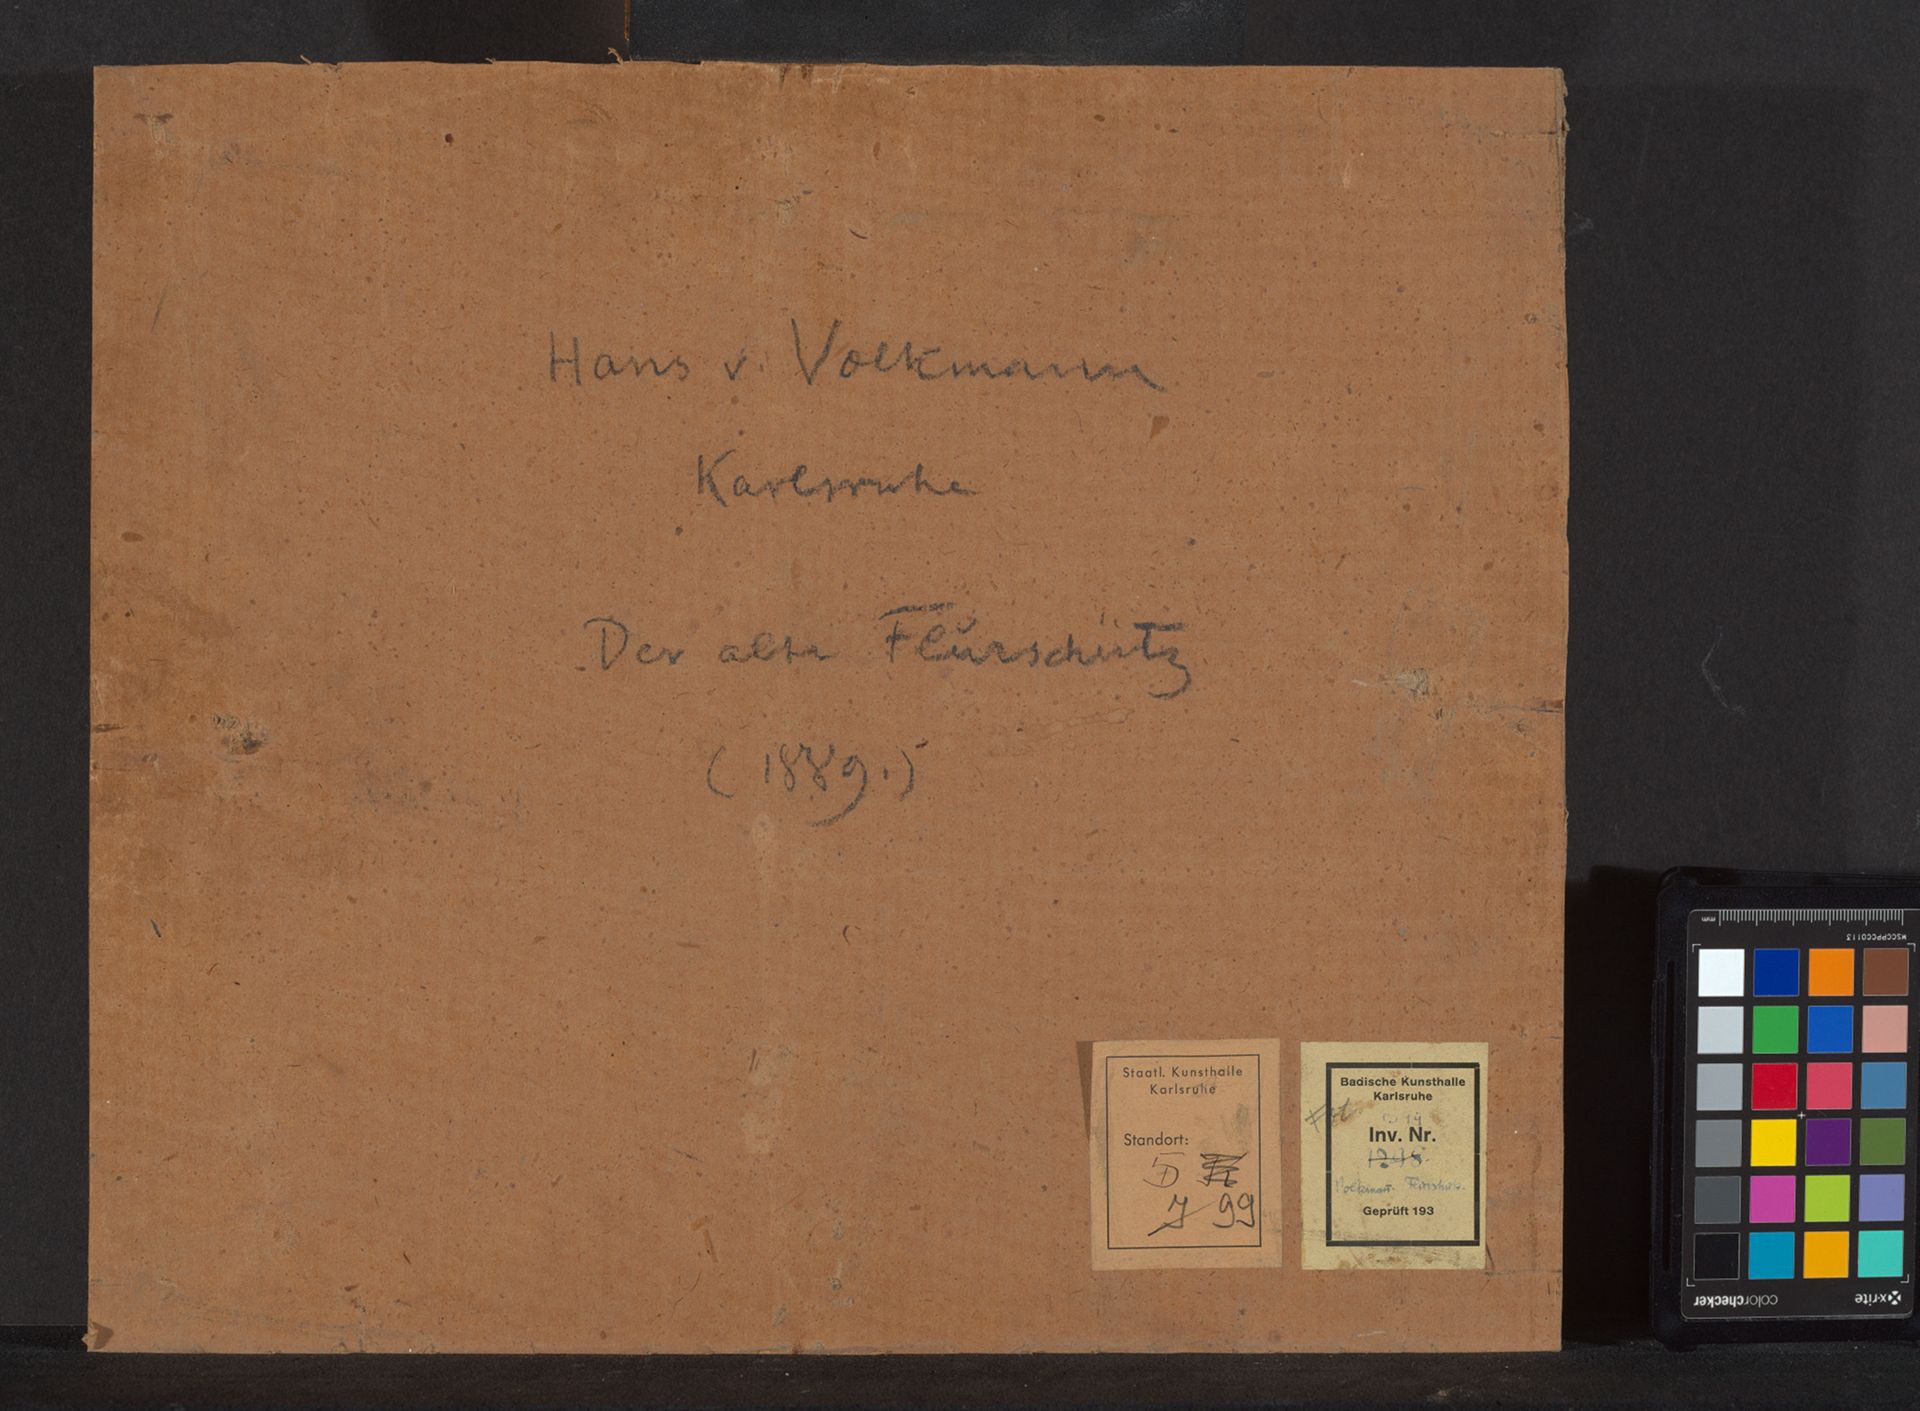 Hans v. Volkmann
Karlsruhe
Der alte Flurschütz
(1889.)
Staatl. Kunsthalle
Karlsruhe
Standort:
99
Badische Kunsthalle
Karlsruhe
Inv. Nr.
Volkmann Flurschütz.
Geprüft 193
mm
MSCCPPCC0113
colorchecker
x-rite